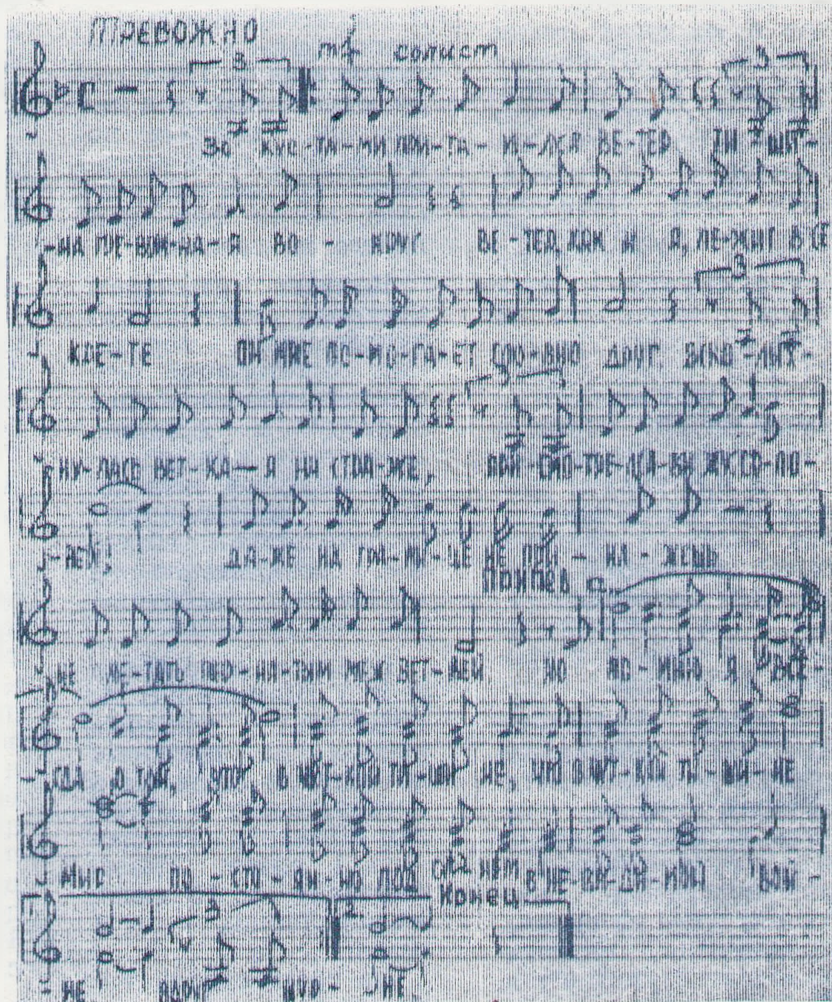 ТРЕВОЖНО
mf солист
3 3
За КУС-ТА-МИ ПРИ-ТА-И-ЛСЯ ВЕ-ТЕР ТИ-ШИ-
-НА ТРЕ-ВОЖ-НА-Я ВО - КРУГ ВЕ-ТЕР, КАК И Я, ЛЕ-ЖИТ В СЕ
3
КРЕ-ТЕ ОН МНЕ ПО-МО-ГА-ЕТ СЛО-ВНО ДРУГ. ВСКО-ЛЫХ-
3
НУ-ЛАСЬ ВЕТ-КА—Я НА СТРА-ЖЕ, ПРИ-СМО-ТРЕ-ЛСЯ-ВИ ЖУ:СО-ЛО-
-ВЕЙ; ДА-ЖЕ НА ГРА-НИ-ЦЕ НЕ ПРИ - КА - ЖЕШЬ
Припев
НЕ ЛЕ-ТАТЬ ПЕР-НА-ТЫМ МЕЖ ВЕТ-ВЕЙ НО ПО-МНЮ Я ВСЕ-
-ГДА О ТОМ, ЧТО В ЧУТ-КОЙ ТИ-ШИ НЕ, ЧТО В ЧУТ-КОЙ ТИ-ШИ-НЕ
МИР ПО - СТО - ЯН-НО ПОД ОГ-НЕМ В НЕ-ВИ-ДИ-МОЙ ВОЙ-
1. 3 2. Конец
- НЕ - НЕ